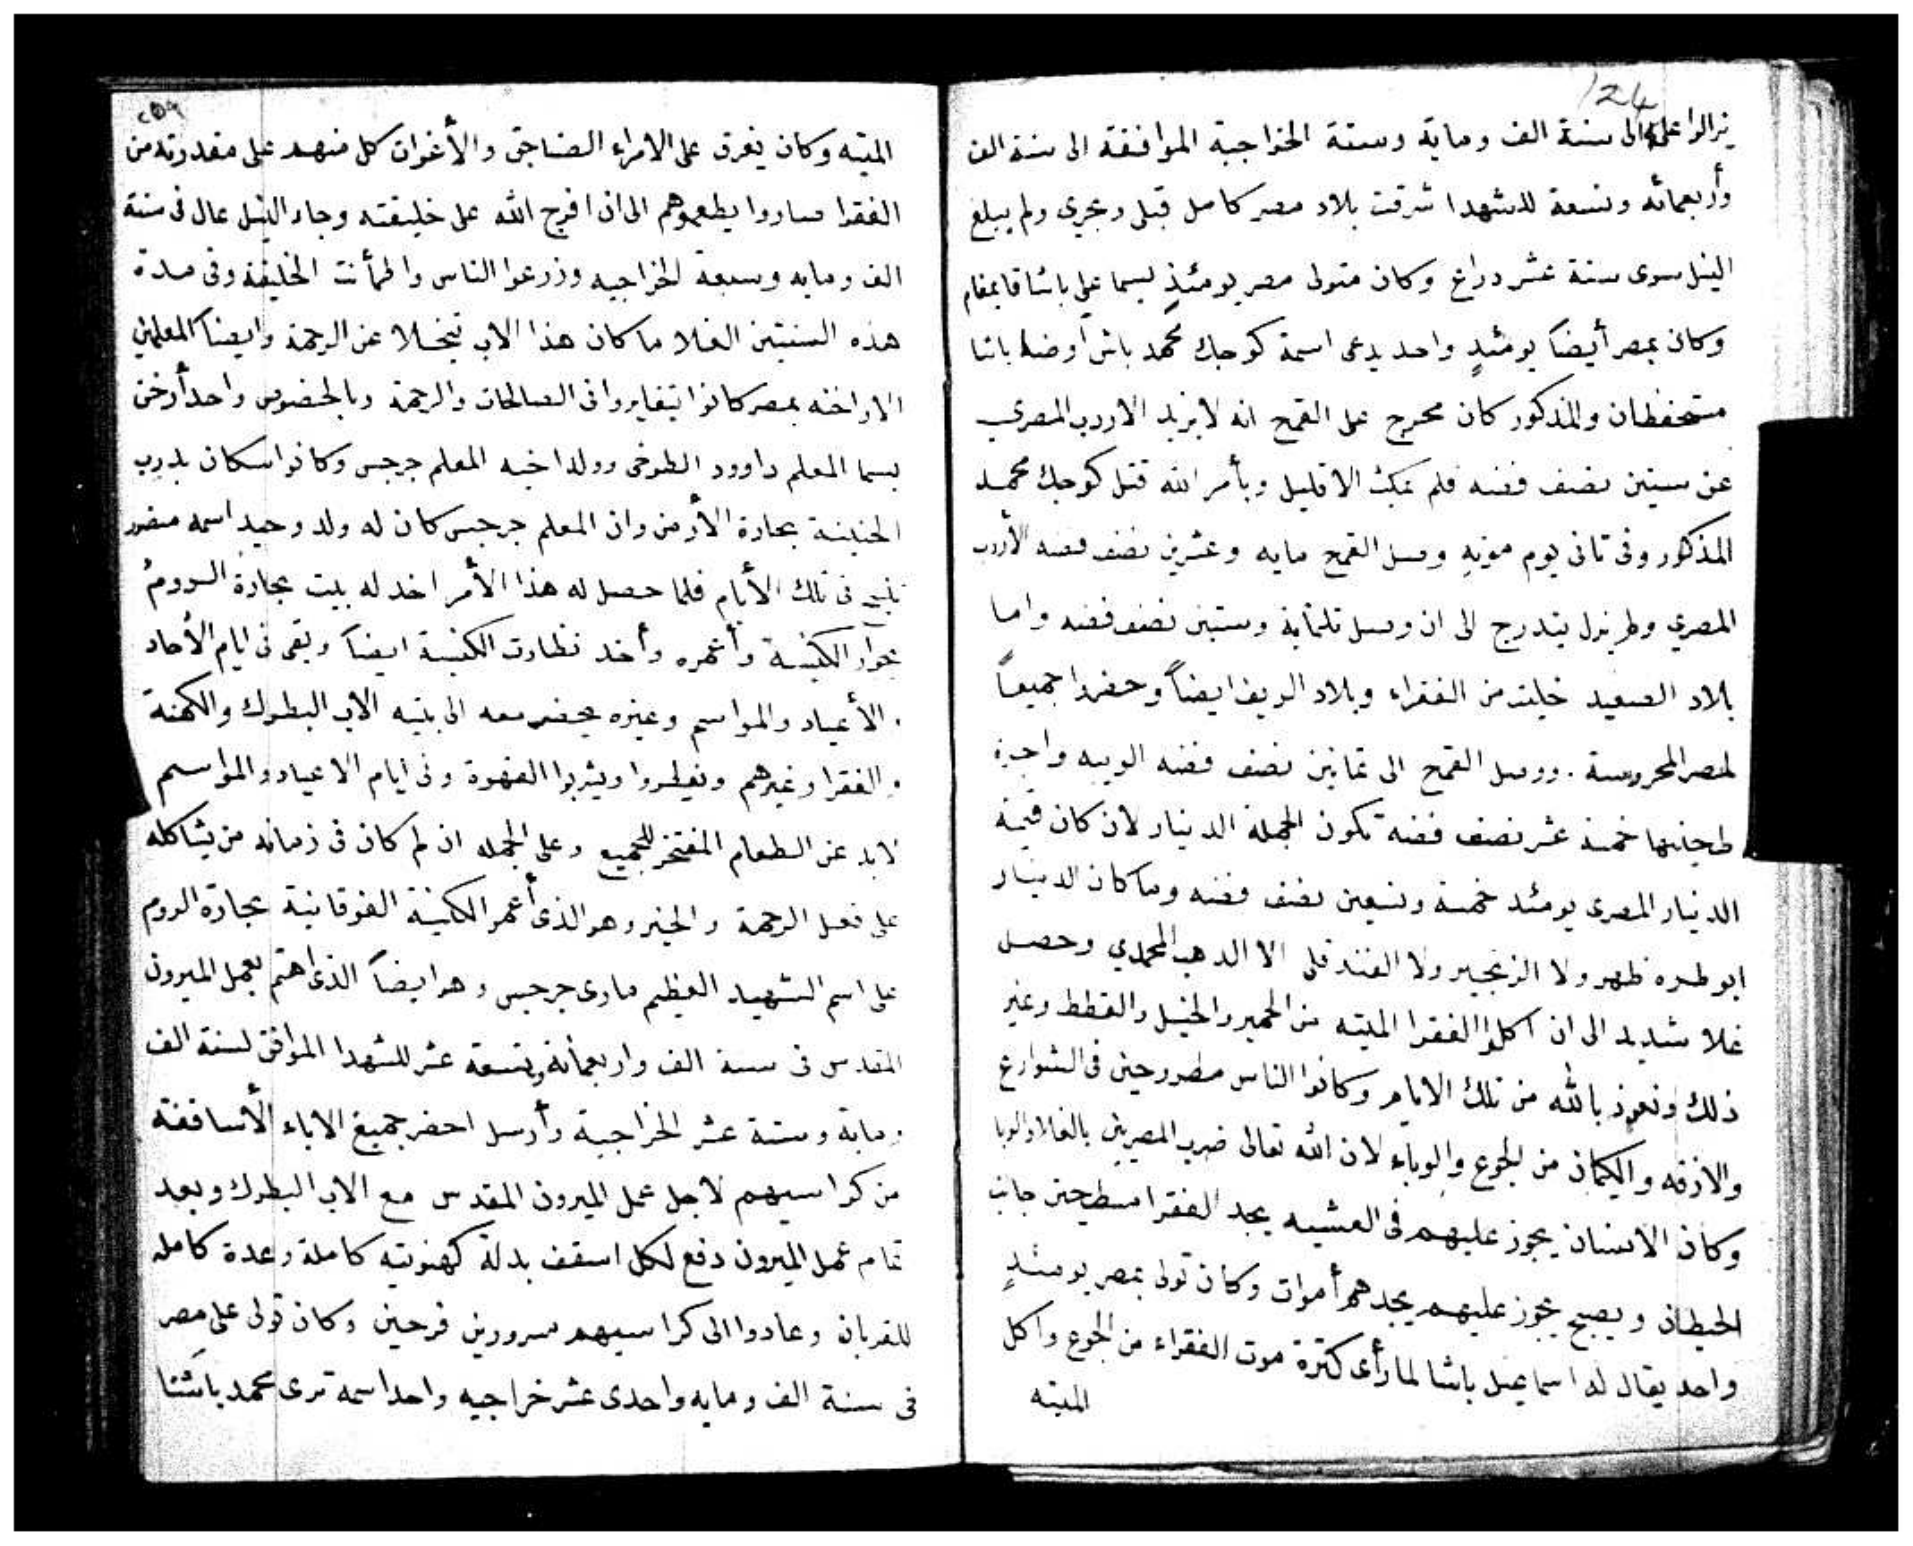 124
يزالوا على الى سنة الف وماية وستة الخراجية الموافقة الى سنة الف
وأربعمائه وتسعة للشهدا شرقت بلاد مصر كامل قبلى وبحري ولم يبلغ
النيل سوى ستة عشر دراع وكان متولى مصر يومئذٍ يسما علي باشا قايمقام
وكان بمصر أيضاً يومئدٍ واحد يدعى اسمه كوجك محمد باش اوضه باشا
مستحفظان والمذكور كان محرج على القمح انه لا يزيد الاردب المصري
عن ستين نصف فضه فلم يمكث الا قليل وبأمر الله قتل كوجك محمد
المذكور وفى تانى يوم موته وصل القمح مايه وعشرين نصف فضه الأردب
المصري ولم يزل يتدرج الى ان وصل تلتماية وستين نصف فضه واما
بلاد الصعيد خليت من الفقراء وبلاد الريف ايضاً وحضروا جميعاً
لمصر المحروسة . ووصل القمح الى تمانين نصف فضه الويبه واجرة
طحينها خمسة عشر نصف فضه تكون الجملة الدينار لان كان قيمة
الدينار المصرى يومئد خمسة وتسعين نصف فضه وما كان الدينار
ابو طره ظهر ولا الزنجير ولا الفندقلى الا الدهب المحمدي وحصل
غلا شديد الى ان اكلوا الفقرا الميته من الحمير والخيل والقطط وغير
ذلك ونعوذ بالله من تلك الايام وكانوا الناس مطروحين فى الشوارع
والازقه والكيمان من الجوع والوباء لان الله تعالى ضرب المصريين بالغلا والوبا
وكان الانسان يجوز عليهم فى العشيه يجد الفقرا مسطحين جانب
الحيطان ويصبح يجوز عليهم يجدهم أموات وكان تولى بمصر يومئذٍ
واحد يقال له اسماعيل باشا لما رأى كترة موت الفقراء من الجوع واكل
الميته
الميته وكان يفرق على الامراء الصناجق والأغوات كل منهم على مقدرته من
الفقرا صاروا يطعموهم الى ان افرج الله على خليقته وجاء النيل عال فى سنة
الف ومايه وسبعة الخراجيه وزرعوا الناس واطمأنت الخليقة وفى مدة
هذه السنتين الغلا ما كان هذا الاب يتخلا عن الرحمة وايضاً المعلمين
الاراخنه بمصر كانوا يتغايروا فى الصالحات والرحمة وبالخصوص واحد أرخن
يسما المعلم داوود الطوخى وولد اخيه المعلم جرجس وكانوا سكان بدرب
الجنينة بحارة الأرمن وان المعلم جرجس كان له ولد وحيد اسمه منصور
تنيح فى تلك الأيام فلما حصل له هذا الأمر اخد له بيت بحارة الروم
بجوار الكنيسة وأعمره وأخد نظارت الكنيسة ايضاً وبقى فى ايام الأحاد
والأعياد والمواسم وغيره يحضر معه الى بيته الاب البطرك والكهنة
والفقرا وغيرهم ويفطروا ويشربوا القهوة وفى ايام الاعياد والمواسم
لابد عن الطعام المفتخر للجميع وعلى الجمله ان لم كان فى زمانه من يشاكله
على فعل الرحمة والخير وهو الذى أعمر الكنيسة الفوقانية بحارة الروم
على اسم الشهيد العظيم مارى جرجس وهو ايضاً الذى اهتم بعمل الميرون
المقدس فى سنة الف واربعمائة وتسعة عشر للشهدا الموافق لسنة الف
وماية وستة عشر الخراجية وأرسل احضر جميع الاباء الأساقفة
من كراسيهم لاجل عمل الميرون المقدس مع الاب البطرك وبعد
تمام عمل الميرون دفع لكل اسقف بدلة كهنوتيه كاملة وعدة كامله
للقربان وعادوا الى كراسيهم مسرورين فرحين وكان تولى على مصر
فى سنة الف ومايه واحدى عشر خراجيه واحد اسمه ترى محمد باشا